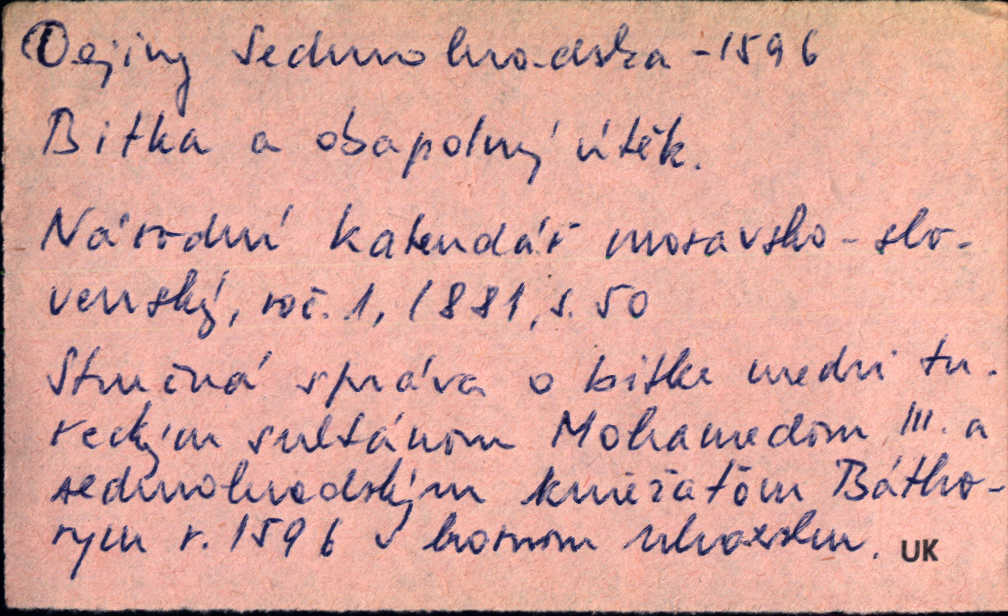 Dejiny Sedmohradska - 1596
Bitka a obapolný útěk.
Národní kalendář moravsko-slo-
venský, roč. 1, 1881, s. 50
Stručná správa o bitke medzi tu-
reckým sultánom Mohamedom III. a
sedmohradským kniežaťom Bátho-
rym r. 1596 v hornom Uhorsku. UK